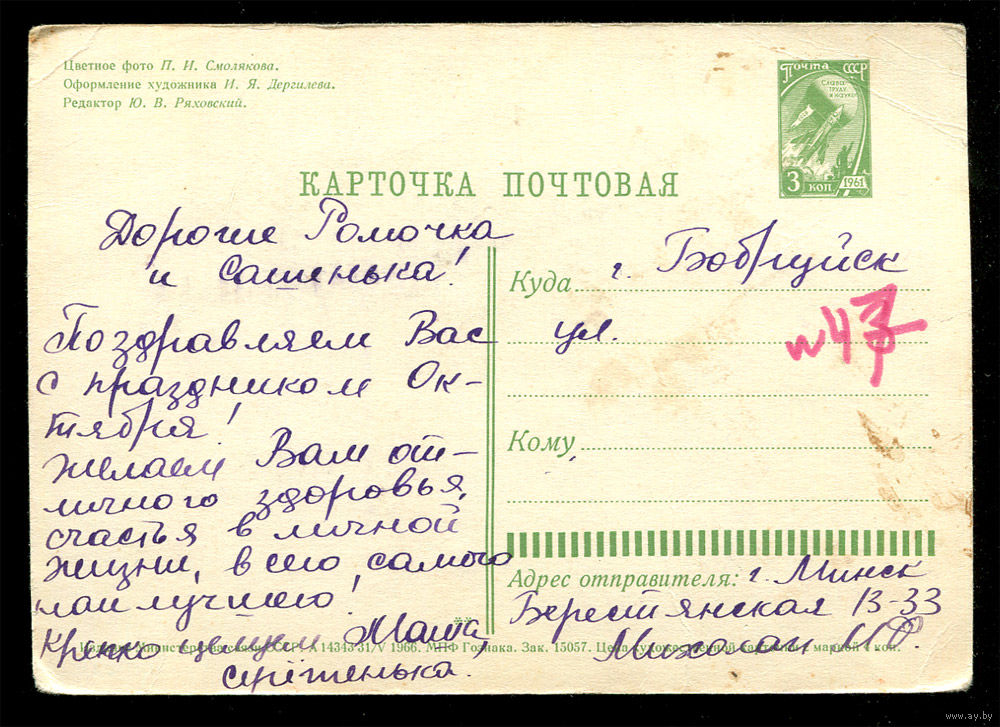 Цветное фото П. И. Смолякова.
Оформление художника И. Я. Дергилева.
Редактор Ю. В. Ряховский.
Почта СССР
Слава
труду
и науке
3 коп 1961
КАРТОЧКА ПОЧТОВАЯ
Дорогие Ромочка
и Сашенька!
Поздравляем Вас
с праздником Ок-
тября!
Желаем Вам от-
личного здоровья,
счастья в личной
жизни, всего самого
наилучшего!
Крепко целуем Маша,
Серёженька.
Куда г. Бобруйск
ул.
Кому
Адрес отправителя: г. Минск
Берестянская 13-33
Издание Министерства связи СССР. А 14343 31/V 1966. МПФ Гознака. Зак. 15057. Цена художественной карточки с маркой 4 коп.
www.ay.by